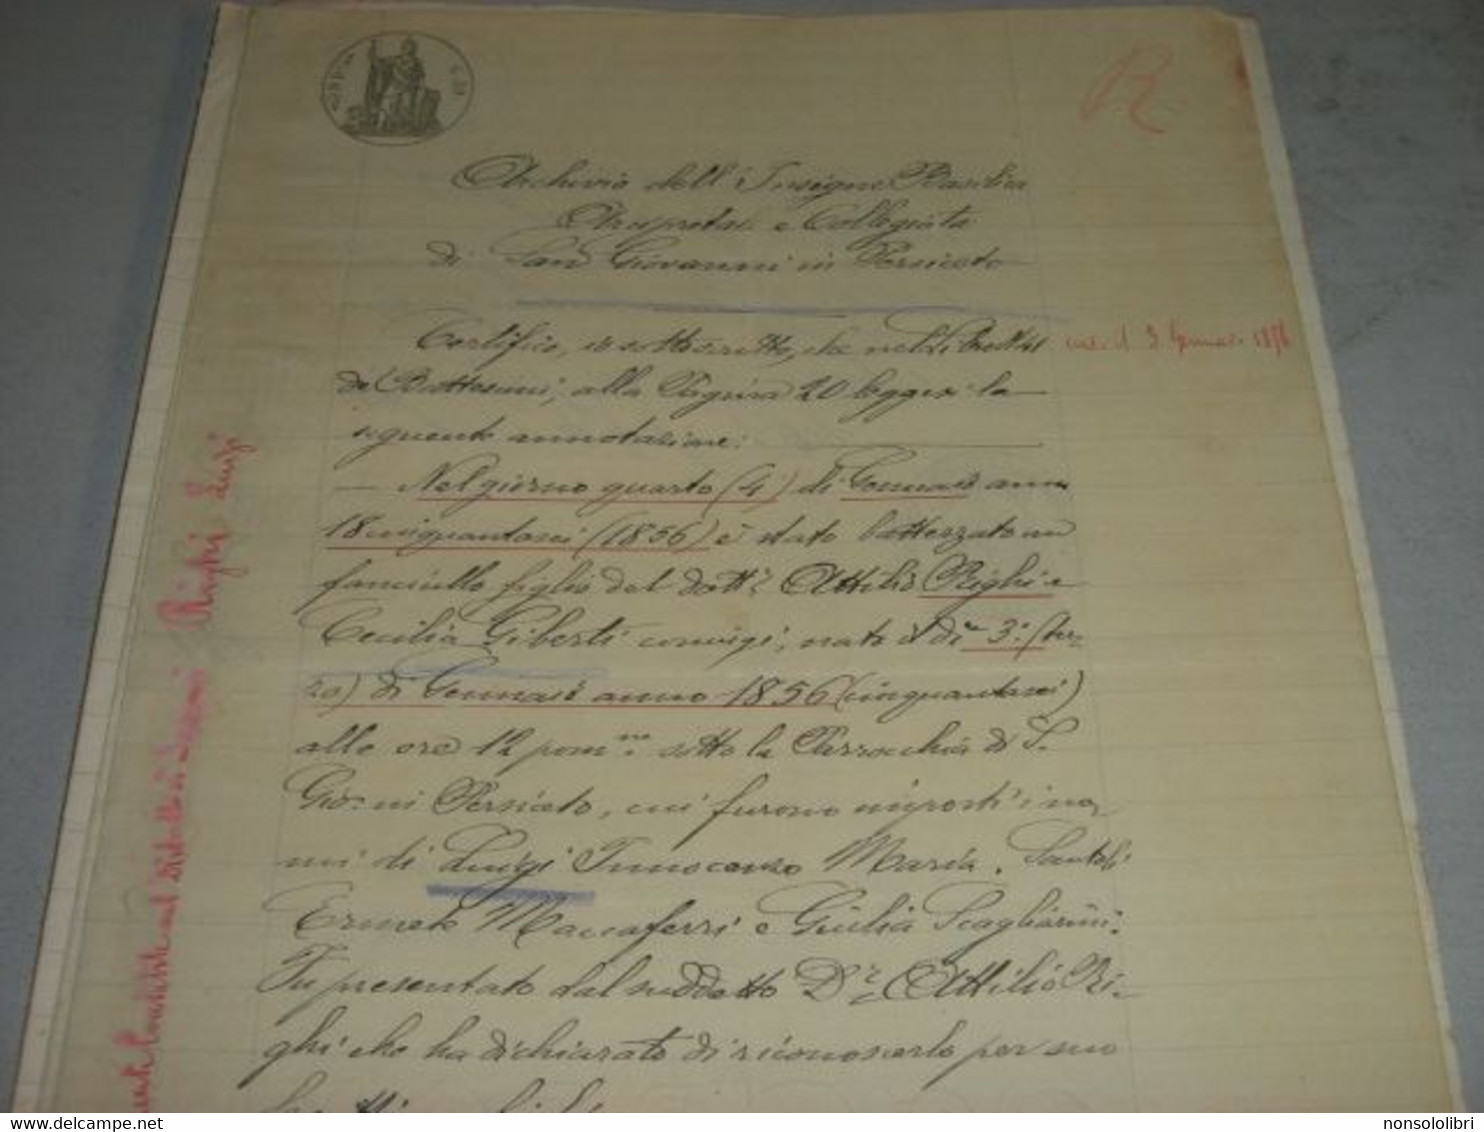 R
Archivio dell'Insigne Basilica
Arcipretale e Collegiata
di San Giovanni in Persiceto
Certifico, io sottoscritto, che nel Libro N. 41
de Battesimi, alla Pagina 20 leggesi la
seguente annotazione:
— Nel giorno quarto (4) di Gennaio anno
18cinquantasei (1856) è stato battezzato un
fanciullo figlio del dottr. Attilio Righi e
Cecilia Giberti coniugi, nato il dì 3: (ter-
zo) di Gennaio anno 1856 (cinquantasei)
alle ore 12 pomne. sotto la Parrocchia di S.
Giovni Persiceto, cui furono imposti i no-
mi di Luigi Innocenzo Maria. Santoli
Ermete Maccaferri e Giulia Scagliarini.
Fu presentato dal suddetto Dr. Attilio Ri-
ghi che ha dichiarato di riconoscerlo per suo
3 Gennaio 1856
Righi Luigi
nonsololibri